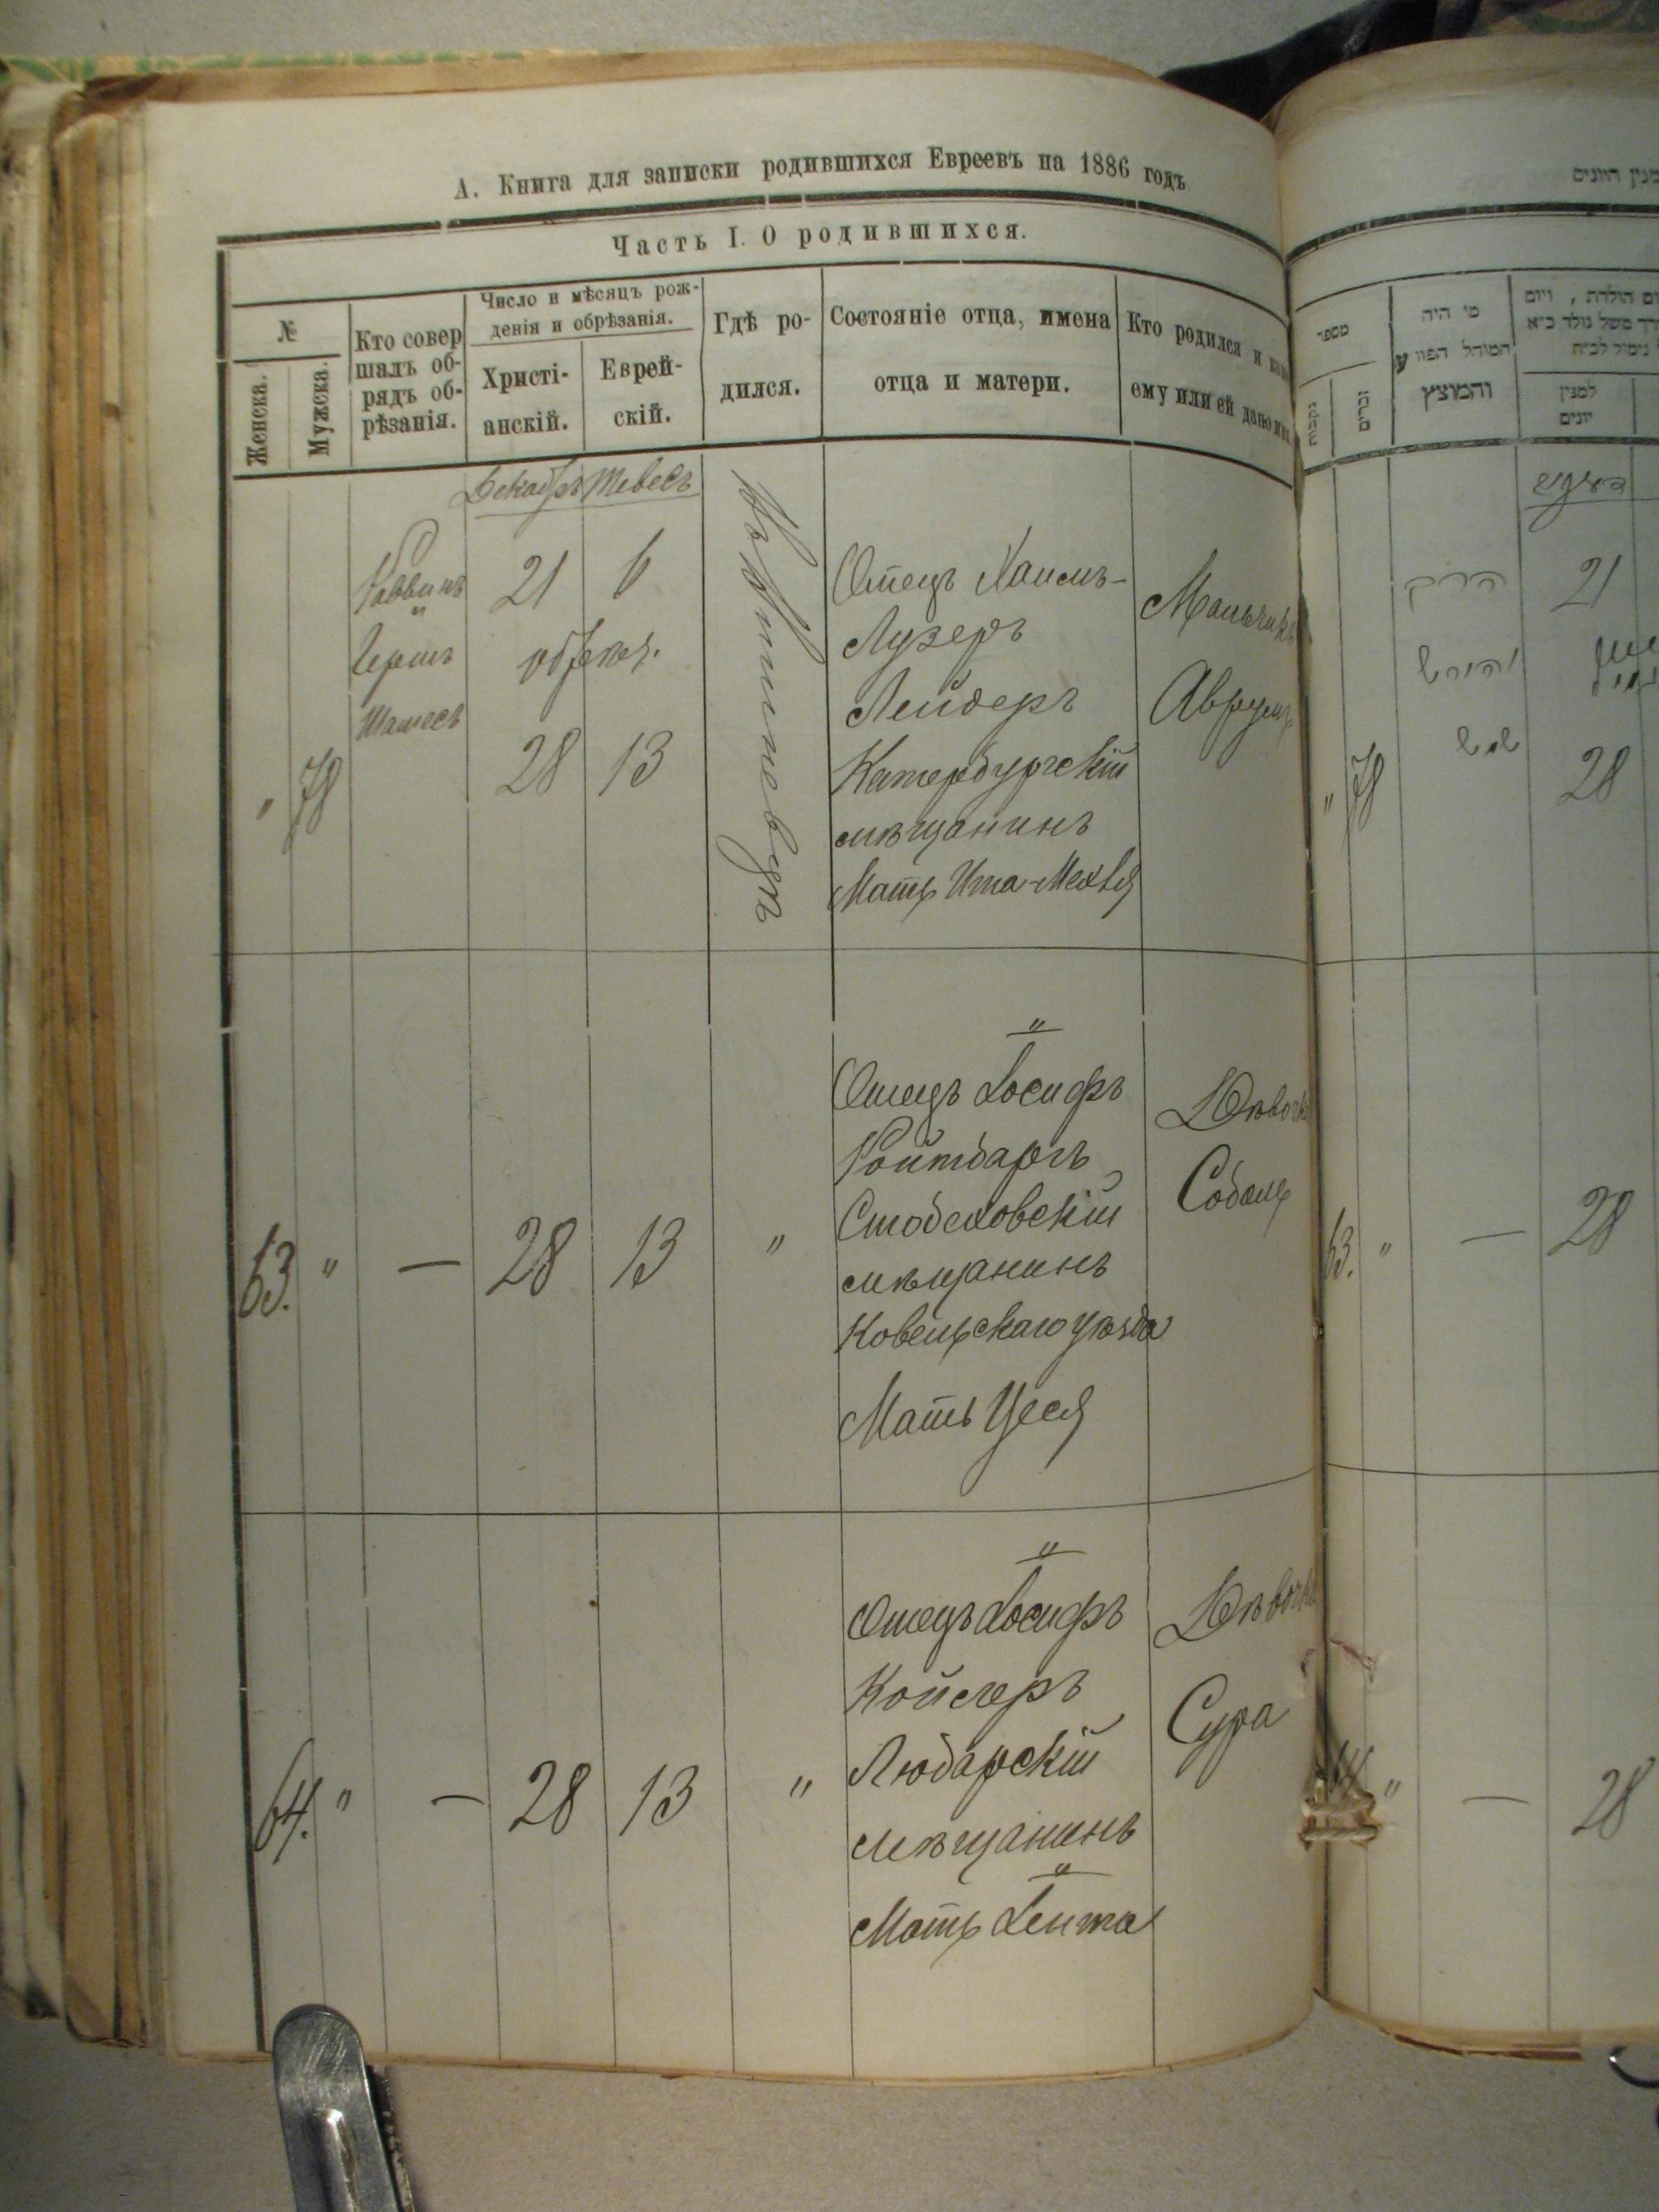 А. Книга для записки родившихся Евреевъ на 1886 годъ
Часть I. О родившихся.
№
Женска.
Мужска.
Кто совер
шалъ об-
рядъ об-
рѣзанія.
Число и мѣсяцъ рож-
денія и обрѣзанія.
Христі-
анскій.
Еврей-
скій.
Гдѣ ро-
дился.
Состояніе отца, имена
отца и матери.
Кто родился и
ему или ей дано
Декабрь Тевесъ
„ 78
Раввинъ
и
Гершъ
Шамесъ
21 6
обрезан.
28 13
Отецъ Хаимъ-
Лузеръ
Лейдеръ
Катербургскій
мѣщанинъ
Мать Ита-Мехля
Мальчикъ
Аврумъ
63. „ — 28 13 „
Отецъ Іосифъ
Ройтбаргъ
мѣщанинъ
Ковельскаго уѣзда
Мать Цеся
Дѣвочка
Соболь
64. „ — 28 13 „
Отецъ Іосифъ
Койлеръ
Любарскій
мѣщанинъ
Мать Іента
Дѣвочка
Сура
מספר
נקבות
זכרים
מי היה
המוהל
והמוצץ
למנין
יונים
21
28
„ 78
63. „ — 28
64 „ — 28